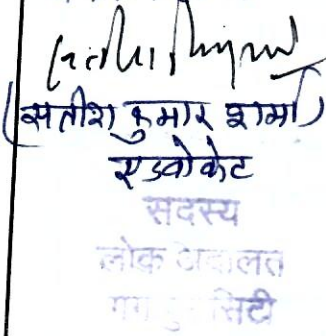 (सतीश कुमार शर्मा)
एडवोकेट
सदस्य
लोक अदालत
सिटी